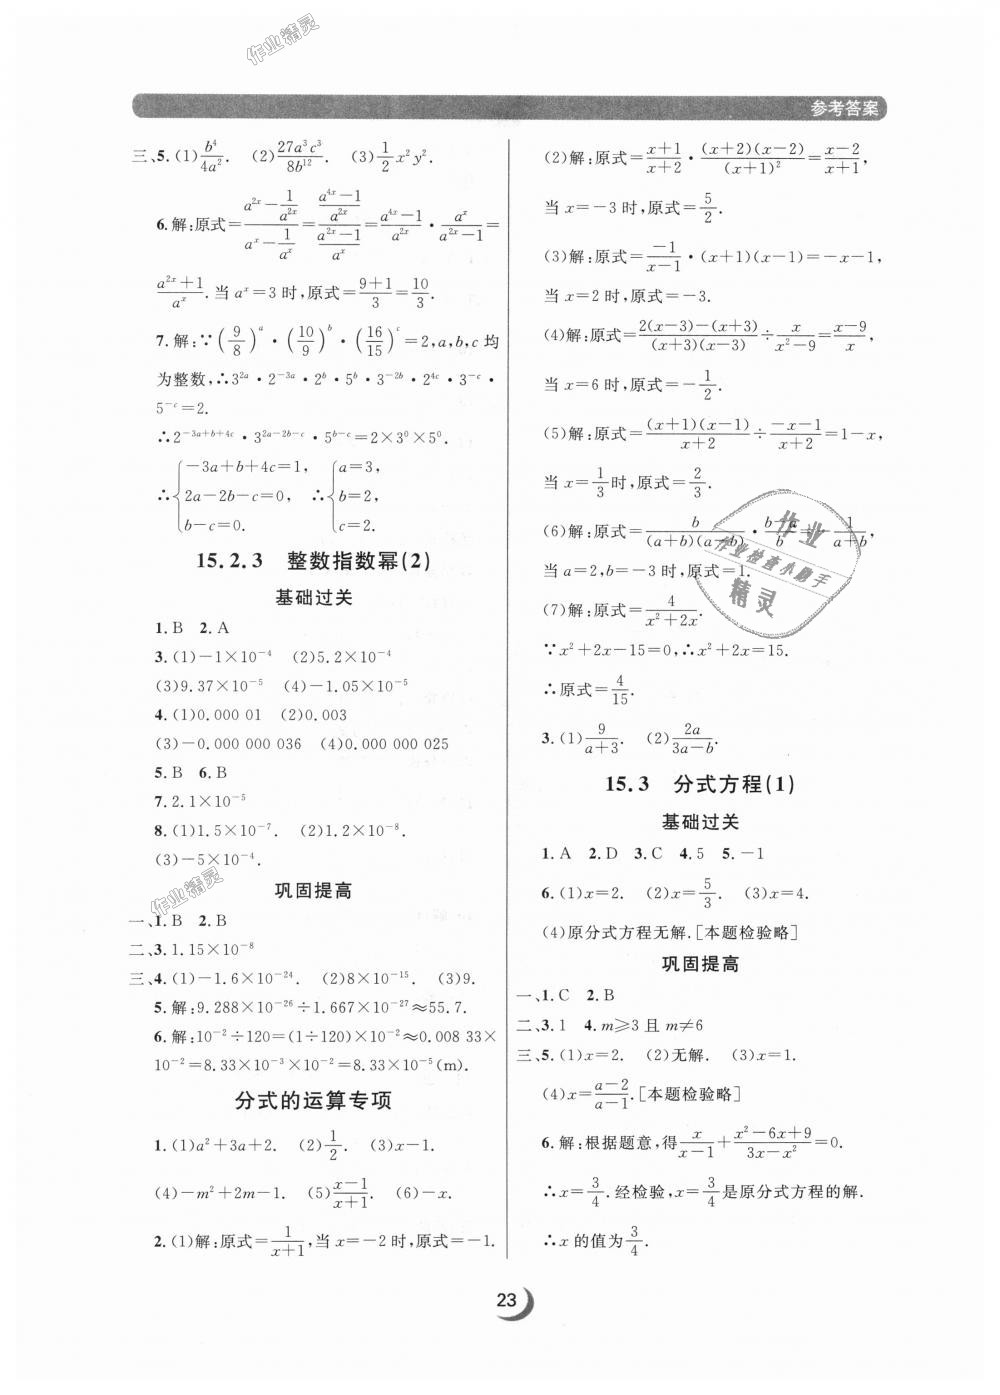 作业精灵
参考答案
三、5.(1)b⁴/4a². (2)27a³c³/8b¹². (3)1/2 x²y².
6.解:原式=(a²ˣ-1/a²ˣ)/(aˣ-1/aˣ)=((a⁴ˣ-1)/a²ˣ)/((a²ˣ-1)/aˣ)=(a⁴ˣ-1)/a²ˣ·aˣ/(a²ˣ-1)=
(a²ˣ+1)/aˣ.当 aˣ=3 时,原式=(9+1)/3=10/3.
7.解:∵(9/8)^a·(10/9)^b·(16/15)^c=2,a,b,c 均
为整数,∴3^(2a)·2^(-3a)·2^b·5^b·3^(-2b)·2^(4c)·3^(-c)·
5^(-c)=2.
∴2^(-3a+b+4c)·3^(2a-2b-c)·5^(b-c)=2×3⁰×5⁰.
∴{-3a+b+4c=1, 2a-2b-c=0, b-c=0. ∴{a=3, b=2, c=2.
15.2.3 整数指数幂(2)
基础过关
1.B 2.A
3.(1)-1×10⁻⁴ (2)5.2×10⁻⁴
(3)9.37×10⁻⁵ (4)-1.05×10⁻⁵
4.(1)0.000 01 (2)0.003
(3)-0.000 000 036 (4)0.000 000 025
5.B 6.B
7.2.1×10⁻⁵
8.(1)1.5×10⁻⁷. (2)1.2×10⁻⁸.
(3)-5×10⁻⁴.
作业精灵
巩固提高
一、1.B 2.B
二、3.1.15×10⁻⁸
三、4.(1)-1.6×10⁻²⁴. (2)8×10⁻¹⁵. (3)9.
5.解:9.288×10⁻²⁶÷1.667×10⁻²⁷≈55.7.
6.解:10⁻²÷120=(1÷120)×10⁻²≈0.008 33×
10⁻²=8.33×10⁻³×10⁻²=8.33×10⁻⁵(m).
分式的运算专项
1.(1)a²+3a+2. (2)1/2. (3)x-1.
(4)-m²+2m-1. (5)(x-1)/(x+1). (6)-x.
2.(1)解:原式=1/(x+1),当 x=-2 时,原式=-1.
(2)解:原式=(x+1)/(x+2)·(x+2)(x-2)/(x+1)²=(x-2)/(x+1),
当 x=-3 时,原式=5/2.
(3)解:原式=-1/(x-1)·(x+1)(x-1)=-x-1,
当 x=2 时,原式=-3.
(4)解:原式=(2(x-3)-(x+3))/((x+3)(x-3))÷x/(x²-9)=(x-9)/x
当 x=6 时,原式=-1/2.
(5)解:原式=(x+1)(x-1)/(x+2)÷(-x-1)/(x+2)=1-x,
当 x=1/3时,原式=2/3.
(6)解:原式=b/((a+b)(a-b))·(b-a)/b=-1/(a+b),
当 a=2,b=-3 时,原式=1.
(7)解:原式=4/(x²+2x).
∵x²+2x-15=0,∴x²+2x=15.
∴原式=4/15.
作业
作业检查小助手
精灵
3.(1)9/(a+3). (2)2a/(3a-b).
15.3 分式方程(1)
基础过关
1.A 2.D 3.C 4.5 5.-1
6.(1)x=2. (2)x=5/3. (3)x=4.
(4)原分式方程无解.[本题检验略]
巩固提高
一、1.C 2.B
二、3.1 4.m⩾3 且 m≠6
三、5.(1)x=2. (2)无解. (3)x=1.
(4)x=(a-2)/(a-1).[本题检验略]
6.解:根据题意,得x/(x-1)+(x²-6x+9)/(3x-x²)=0.
∴x=3/4.经检验,x=3/4是原分式方程的解.
∴x 的值为3/4.
23